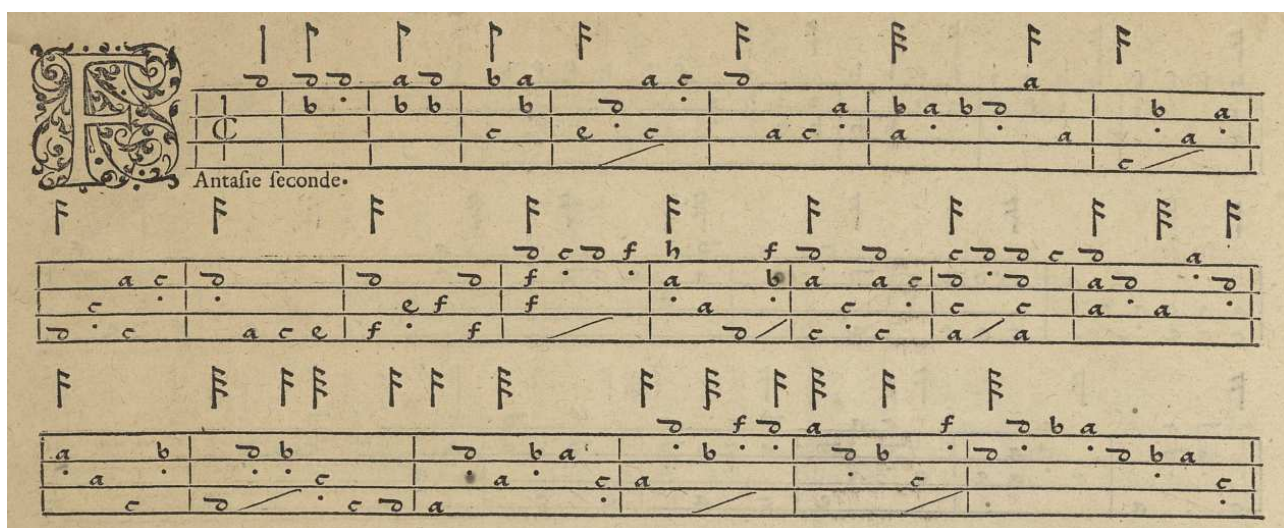 FAntaſie ſeconde.